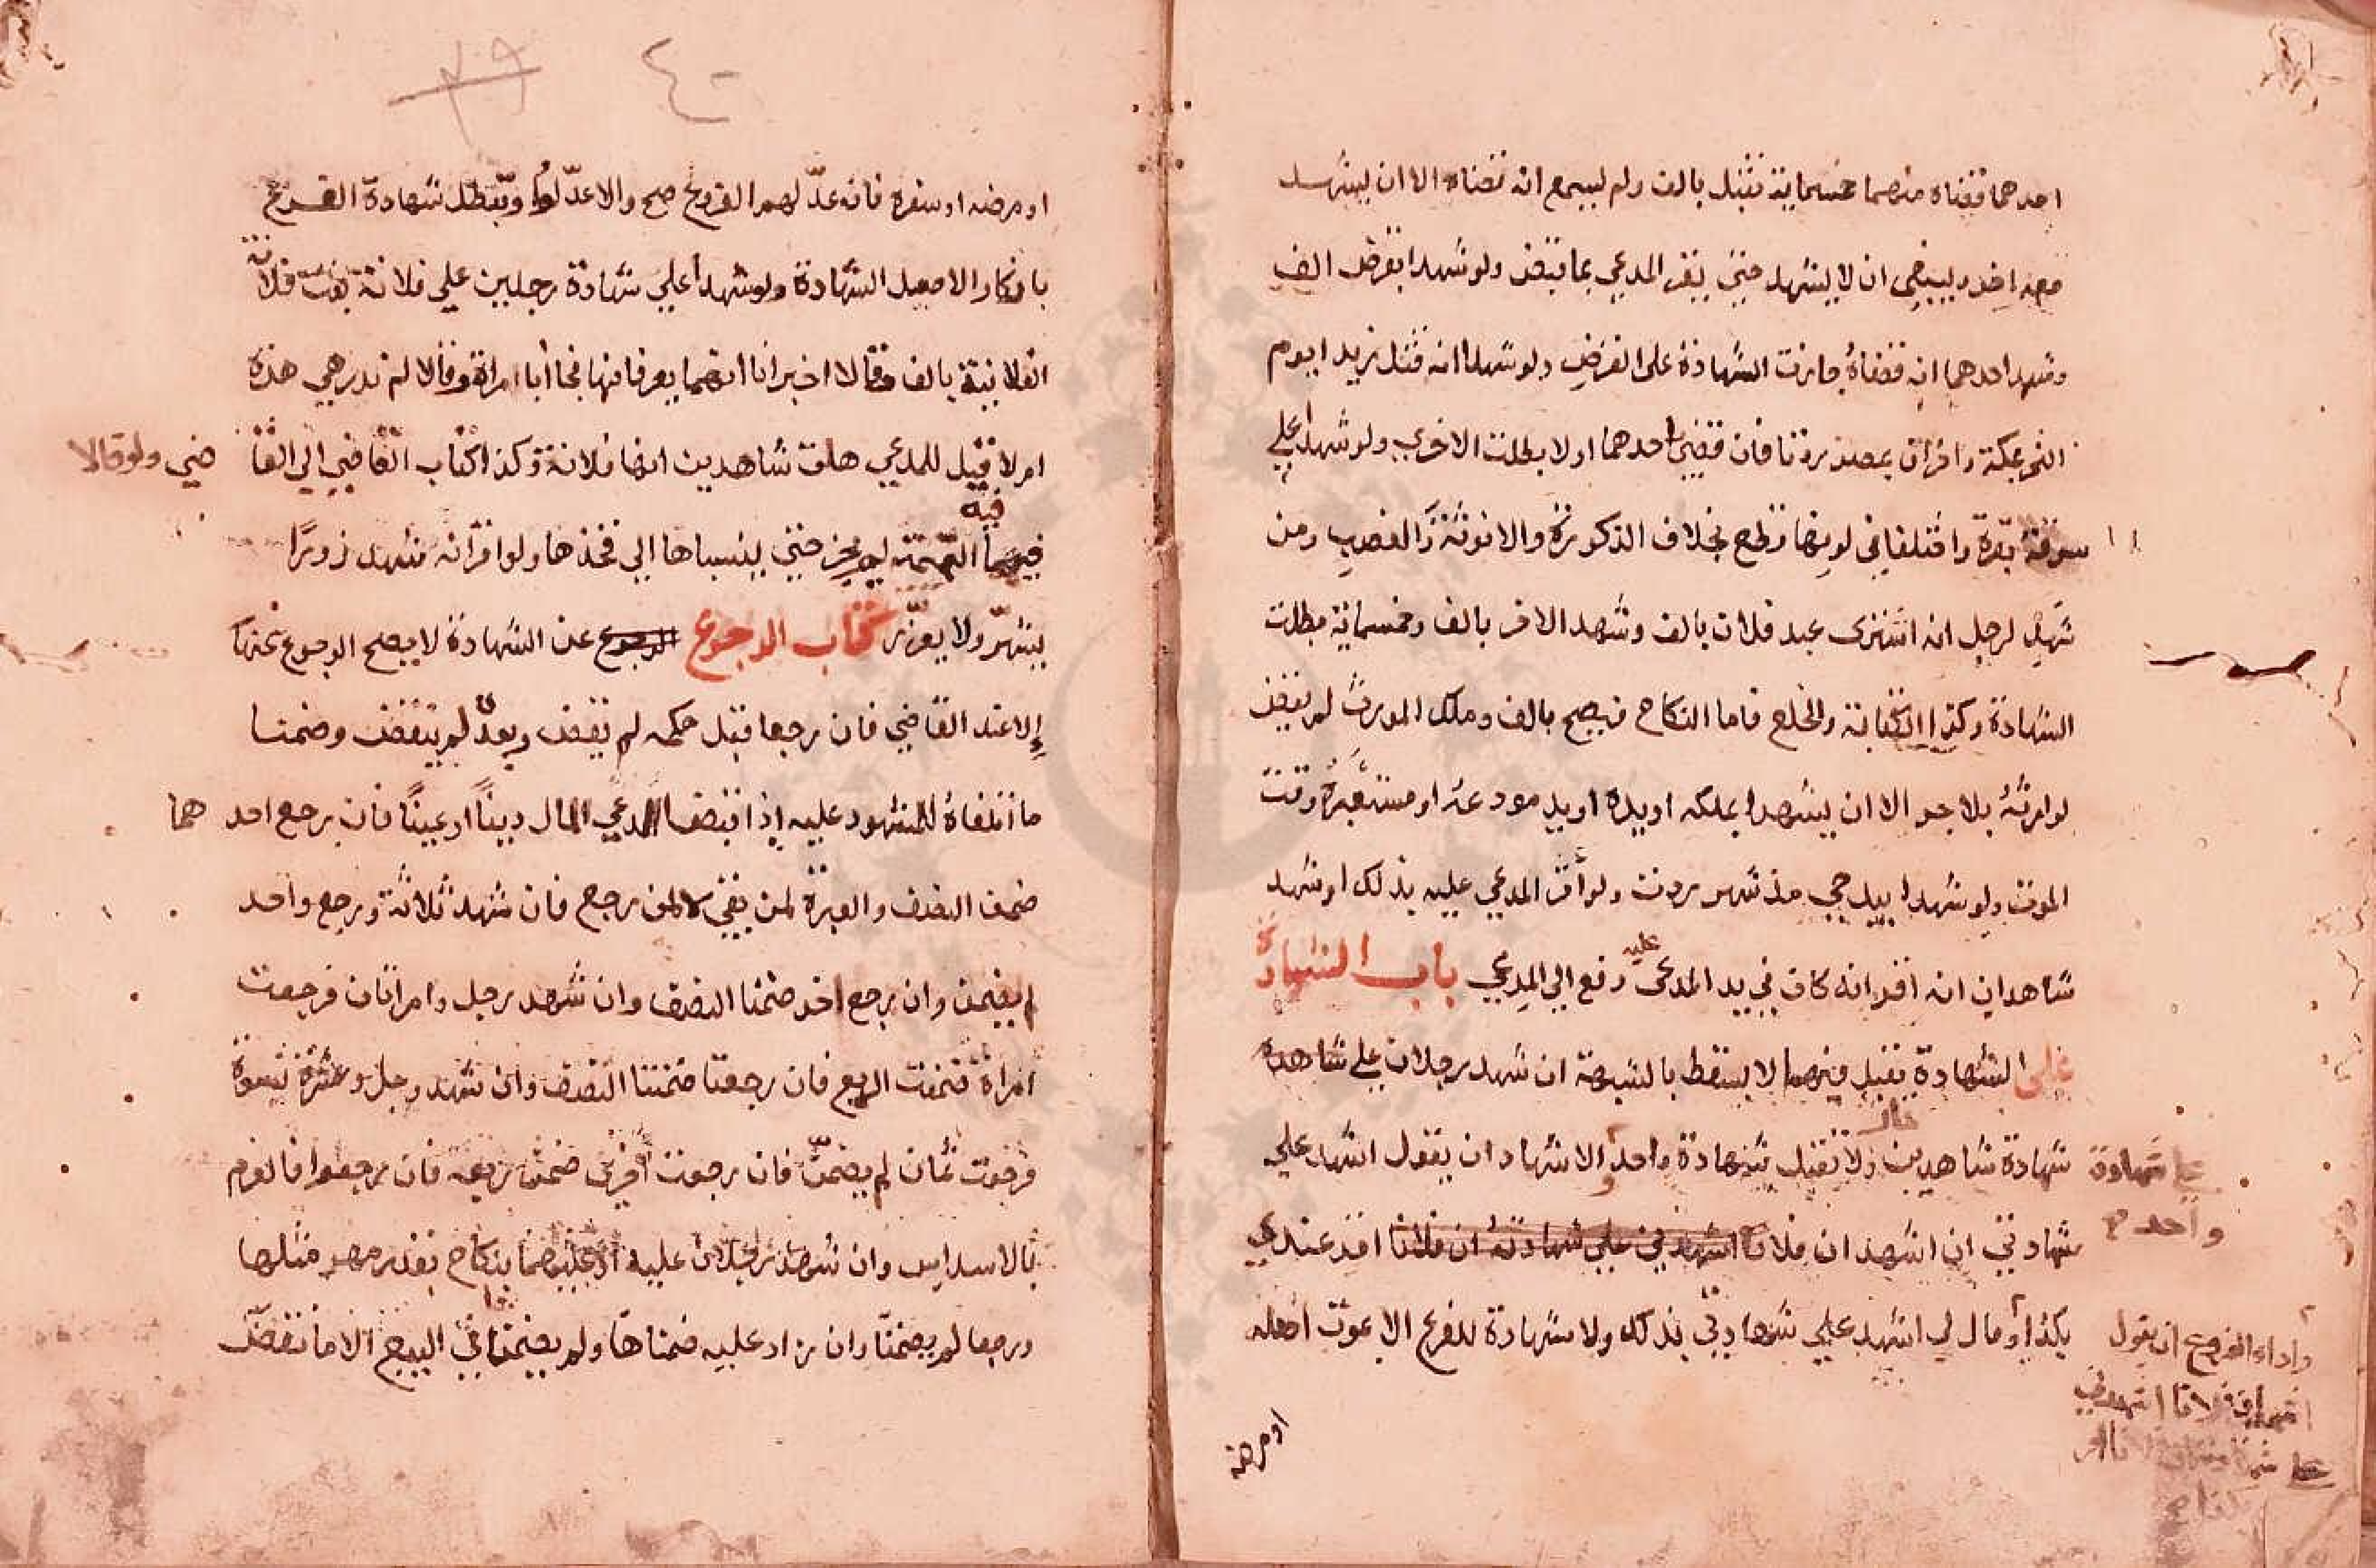 احدهما قضاه منهما خمسماية تقبل بالف ولم يسمع انه قضاه الا ان يشهد
معه اخر وينبغي ان لا يشهد حتى يقر المدعي بما قبض ولو شهدا بقرض الف
وشهد احدهما انه قضاه جازت الشهادة على القرض ولو شهدا انه قتل زيدا يوم
النحر بمكة واخران بمصر ردتا فان قضي باحدهما اولا بطلت الاخرى ولو شهدا علي
سرقة بقرة واختلفا في لونها قطع بخلاف الذكورة والانوثة والغصب ومن
شهد لرجل انه اشترى عبد فلان بالف وشهد الاخر بالف وخمسماية بطلت
الشهادة وكذا الكتابة والخلع فاما النكاح فيصح بالف وملك المورث لم يقض
لوارثه بلا جر الا ان يشهدا بملكه او يده او يد مودعه او مستعيره وقت
الموت ولو شهدا بيد حي مذ شهر ردت ولو أقر المدعي عليه بذلك او شهد
شاهدان انه اقر انه كان في يد المدعى عليه دفع الي المدعي باب الشهادة
على الشهادة تقبل فيما لا يسقط بالشبهة ان شهد رجلان علي شاهدة
شهادة شاهدين ولا تقبل شهادة واحد والاشهاد ان يقول اشهد علي
علي شهادة
واحد
شهادتي ان اشهد ان فلانا اشهدني علي شهادته ان فلانا اقر عندي
بكذا وقال لي اشهد علي شهادتي بذلك ولا شهادة للفرع الا بموت اصله
واداء الفروع ان يقول
اشهد ان فلانا اشهدني
او مرضه
٤٠
٣٩
او مرضه او سفره فان عدّلهم الفروع صح والا عدّلوا وتبطل شهادة الفرع
بانكار الاصيل الشهادة ولو شهدا علي شهادة رجلين علي فلانة بنت فلان
الفلانية بالف وقالا اخبرانا انهما يعرفانها فجاأبامراة وقالا لم ندر هي هذه
ام لا قيل للمدعي هات شاهدين انها فلانة وكذا كتاب القاضي الي القا ضي ولو قالا
فيه
فيهما التميمية لم يجز حتى ينسباها الي فخذها ولو اقر انه شهد زورًا
يشهّر ولا يعزّر كتاب الرجوع عن الشهادة لا يصح الرجوع عنها
إلا عند القاضي فان رجعا قبل حكمه لم يقض وبعده لم ينقض وضمنا
ما اتلفاه للمشهود عليه إذا قبض المدعي المال دينًا او عينًا فان رجع احد هما
ضمن النصف والعبرة لمن بقي لا لمن رجع فان شهد ثلاثة ورجع واحد
لم يضمن وان رجع اخر ضمنا النصف وان شهد رجل وامراتان فرجعت
امراة ضمنت الربع فان رجعتا ضمنتا النصف وان شهد رجل وعشرة نسوة
فرجعت ثمان لم يضمنّ فان رجعت أخرى ضمنّ ربعه فان رجعوا فالغرم
بالاسداس وان شهد رجلان عليه أو عليهما بنكاح بقدر مهر مثلها
ورجعا لم يضمنا وان زاد عليه ضمناها ولم يضمنا في البيع الا ما نقص